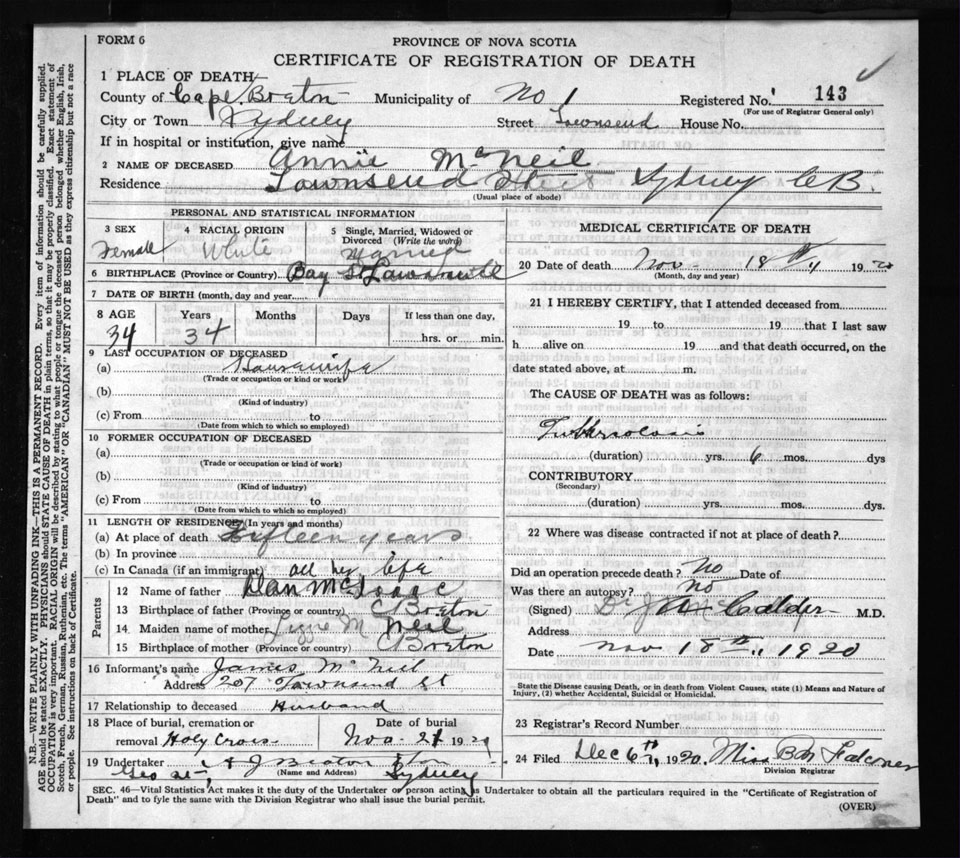 FORM 6
PROVINCE OF NOVA SCOTIA
CERTIFICATE OF REGISTRATION OF DEATH
1 PLACE OF DEATH
County of Cape Breton Municipality of No 1 Registered No. 143
(For use of Registrar General only)
City or Town Sydney Street Townsend House No.
If in hospital or institution, give name
2 NAME OF DECEASED Annie McNeil
Residence Townsend Street Sydney C B.
(Usual place of abode)
PERSONAL AND STATISTICAL INFORMATION
3 SEX 4 RACIAL ORIGIN 5 Single, Married, Widowed or Divorced (Write the word)
Female White Married
6 BIRTHPLACE (Province or Country) Bay St Lawrence
7 DATE OF BIRTH (month, day and year)
8 AGE Years Months Days If less than one day,
34 34 hrs. or min.
9 LAST OCCUPATION OF DECEASED
(a) Housewife
(Trade or occupation or kind or work)
(b)
(Kind of industry)
(c) From to
(Date from which to which so employed)
10 FORMER OCCUPATION OF DECEASED
(a)
(Trade or occupation or kind of work)
(b)
(Kind of industry)
(c) From to
(Date from which to which so employed)
11 LENGTH OF RESIDENCE (In years and months)
(a) At place of death Fifteen years
(b) In province
(c) In Canada (if an immigrant) all her life
Parents
12 Name of father Dan McIsaac
13 Birthplace of father (Province or country) C Breton
14 Maiden name of mother Lizzie McNeil
15 Birthplace of mother (Province or country) C Breton
16 Informant's name James McNeil
Address 207 Townsend St
17 Relationship to deceased Husband
18 Place of burial, cremation or removal Holy Cross Date of burial Nov 21 1920
19 Undertaker A J Beaton & Son
(Name and Address)
Geo St, Sydney
MEDICAL CERTIFICATE OF DEATH
20 Date of death Nov 18th 1920
(Month, day and year)
21 I HEREBY CERTIFY, that I attended deceased from
19 to 19 that I last saw
h alive on 19 and that death occurred, on the
date stated above, at m.
The CAUSE OF DEATH was as follows:
Tuberculosis
(duration) yrs. 6 mos. dys
CONTRIBUTORY
(Secondary)
(duration) yrs. mos. dys.
22 Where was disease contracted if not at place of death?
Did an operation precede death? No Date of
Was there an autopsy? no
(Signed) Dr J Calder M.D.
Address
Date Nov 18th 1920
State the Disease causing Death, or in death from Violent Causes, state (1) Means and Nature of
Injury, (2) whether Accidental, Suicidal or Homicidal.
23 Registrar's Record Number
24 Filed Dec 6th 1920. Miss Falconer
Division Registrar
SEC. 46—Vital Statistics Act makes it the duty of the Undertaker or person acting as Undertaker to obtain all the particulars required in the "Certificate of Registration of
Death" and to fyle the same with the Division Registrar who shall issue the burial permit.
(OVER)
N.B.—WRITE PLAINLY WITH UNFADING INK—THIS IS A PERMANENT RECORD. Every item of information should be carefully supplied.
AGE should be stated EXACTLY. PHYSICIANS should STATE CAUSE OF DEATH in plain terms, so that it may be properly classified. Exact statement of
OCCUPATION is very important. RACIAL ORIGIN will be described by stating to what people or tongue the deceased person belonged whether English, Irish,
Scotch, French, German, Russian, Ruthenian, etc. The terms "AMERICAN" OR "CANADIAN" MUST NOT BE USED as they express citizenship but not a race
or people. See instructions on back of Certificate.